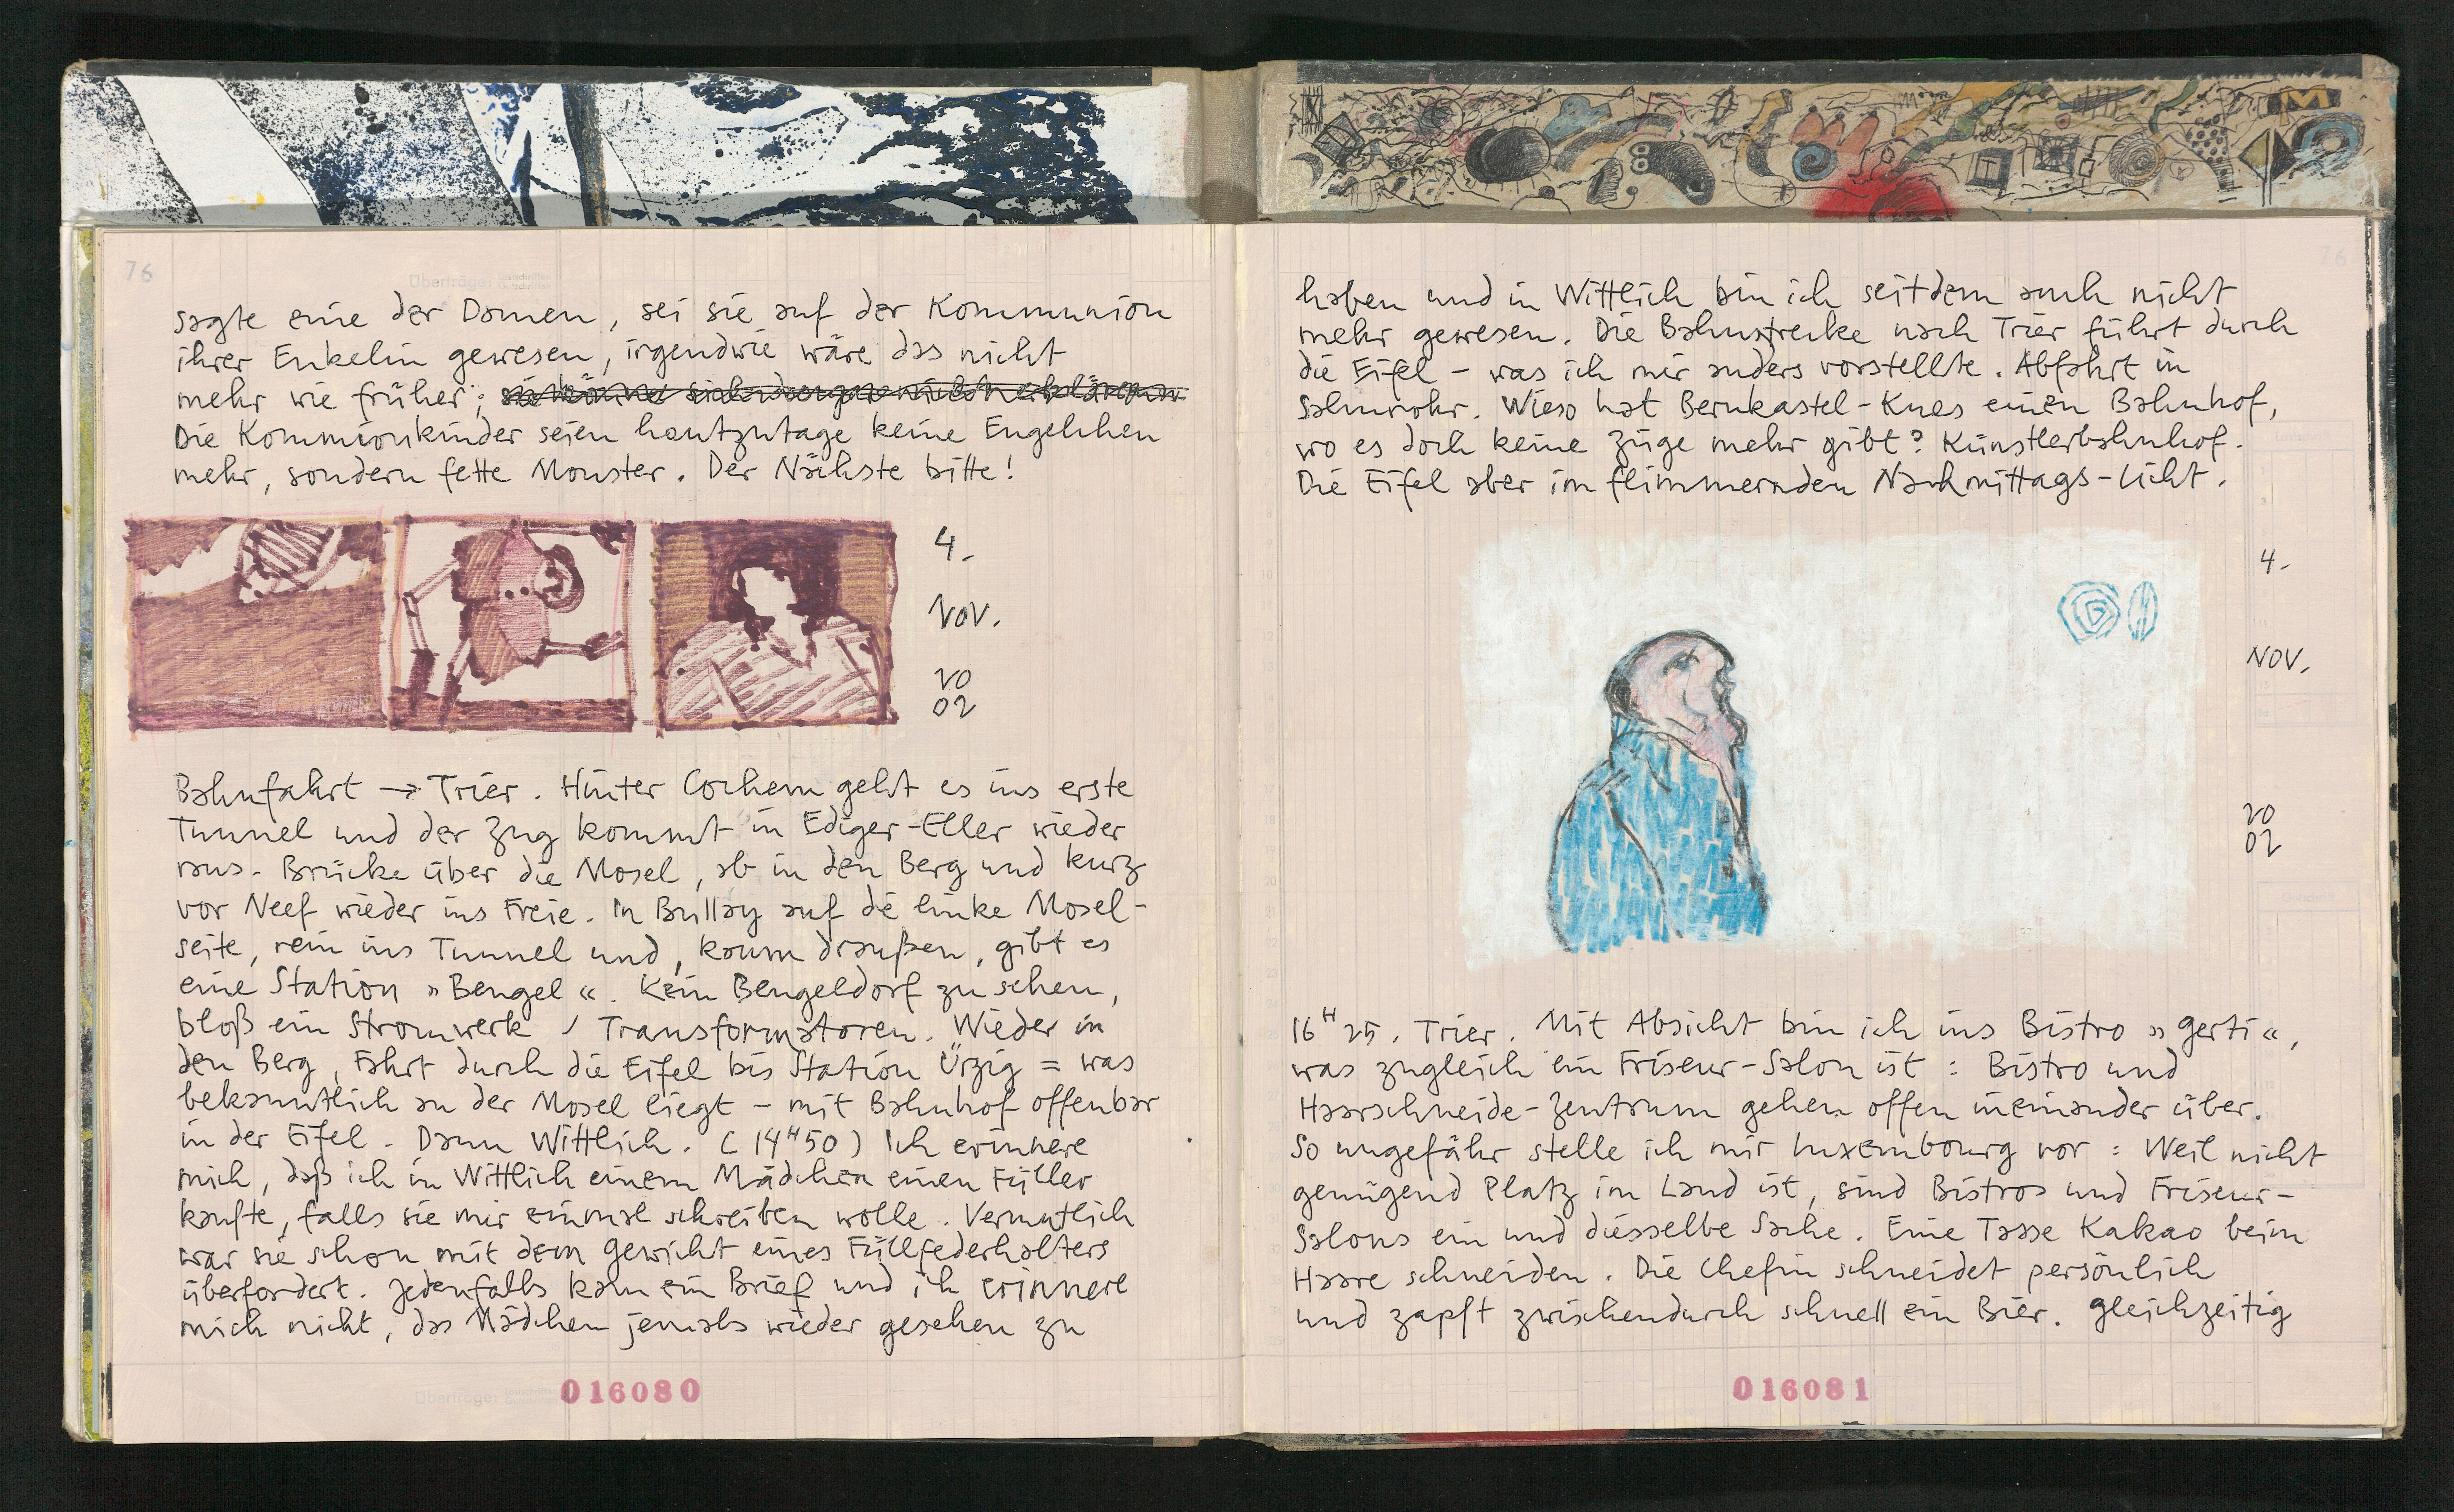 76
Überträge:
sagte eine der Damen, sei sie auf der Kommunion
ihrer Enkelin gewesen, irgendwie wäre das nicht
mehr wie früher;
Die Kommionkinder seien heutzutage keine Engelchen
mehr, sondern fette Monster. Der Nächste bitte!
4.
NOV.
20
02
Bahnfahrt → Trier. Hinter Cochem geht es ins erste
Tunnel und der Zug kommt in Ediger-Eller wieder
raus. Brücke über die Mosel, ab in den Berg und kurz
vor Neef wieder ins Freie. In Bullay auf die linke Mosel-
seite, rein ins Tunnel und, kaum draußen, gibt es
eine Station »Bengel«. Kein Bengeldorf zu sehen,
bloß ein Stromwerk / Transformatoren. Wieder in
den Berg, Fahrt durch die Eifel bis Station Ürzig = was
bekanntlich an der Mosel liegt – mit Bahnhof offenbar
in der Eifel. Dann Wittlich. (14H50) Ich erinnere
mich, daß ich in Wittlich einem Mädchen einen Füller
kaufte, falls sie mir einmal schreiben wolle. Vermutlich
war sie schon mit dem Gewicht eines Füllfederhalters
überfordert. Jedenfalls kam ein Brief und ich erinnere
mich nicht, das Mädchen jemals wieder gesehen zu
Überträge:
016080
76
haben und in Wittlich bin ich seitdem auch nicht
mehr gewesen. Die Bahnstrecke nach Trier führt durch
die Eifel – was ich mir anders vorstellte. Abfahrt in
Salmrohr. Wieso hat Bernkastel-Kues einen Bahnhof,
wo es doch keine Züge mehr gibt? Künstlerbahnhof.
Die Eifel aber im flimmernden Nachmittags-Licht.
4.
NOV.
20
02
16H25. Trier. Mit Absicht bin ich ins Bistro »Gerti«,
was zugleich ein Friseur-Salon ist: Bistro und
Haarschneide-Zentrum gehen offen ineinander über.
So ungefähr stelle ich mir Luxembourg vor: Weil nicht
genügend Platz im Land ist, sind Bistros und Friseur-
Salons ein und diesselbe Sache. Eine Tasse Kakao beim
Haare schneiden. Die Chefin schneidet persönlich
und zapft zwischendurch schnell ein Bier. Gleichzeitig
016081